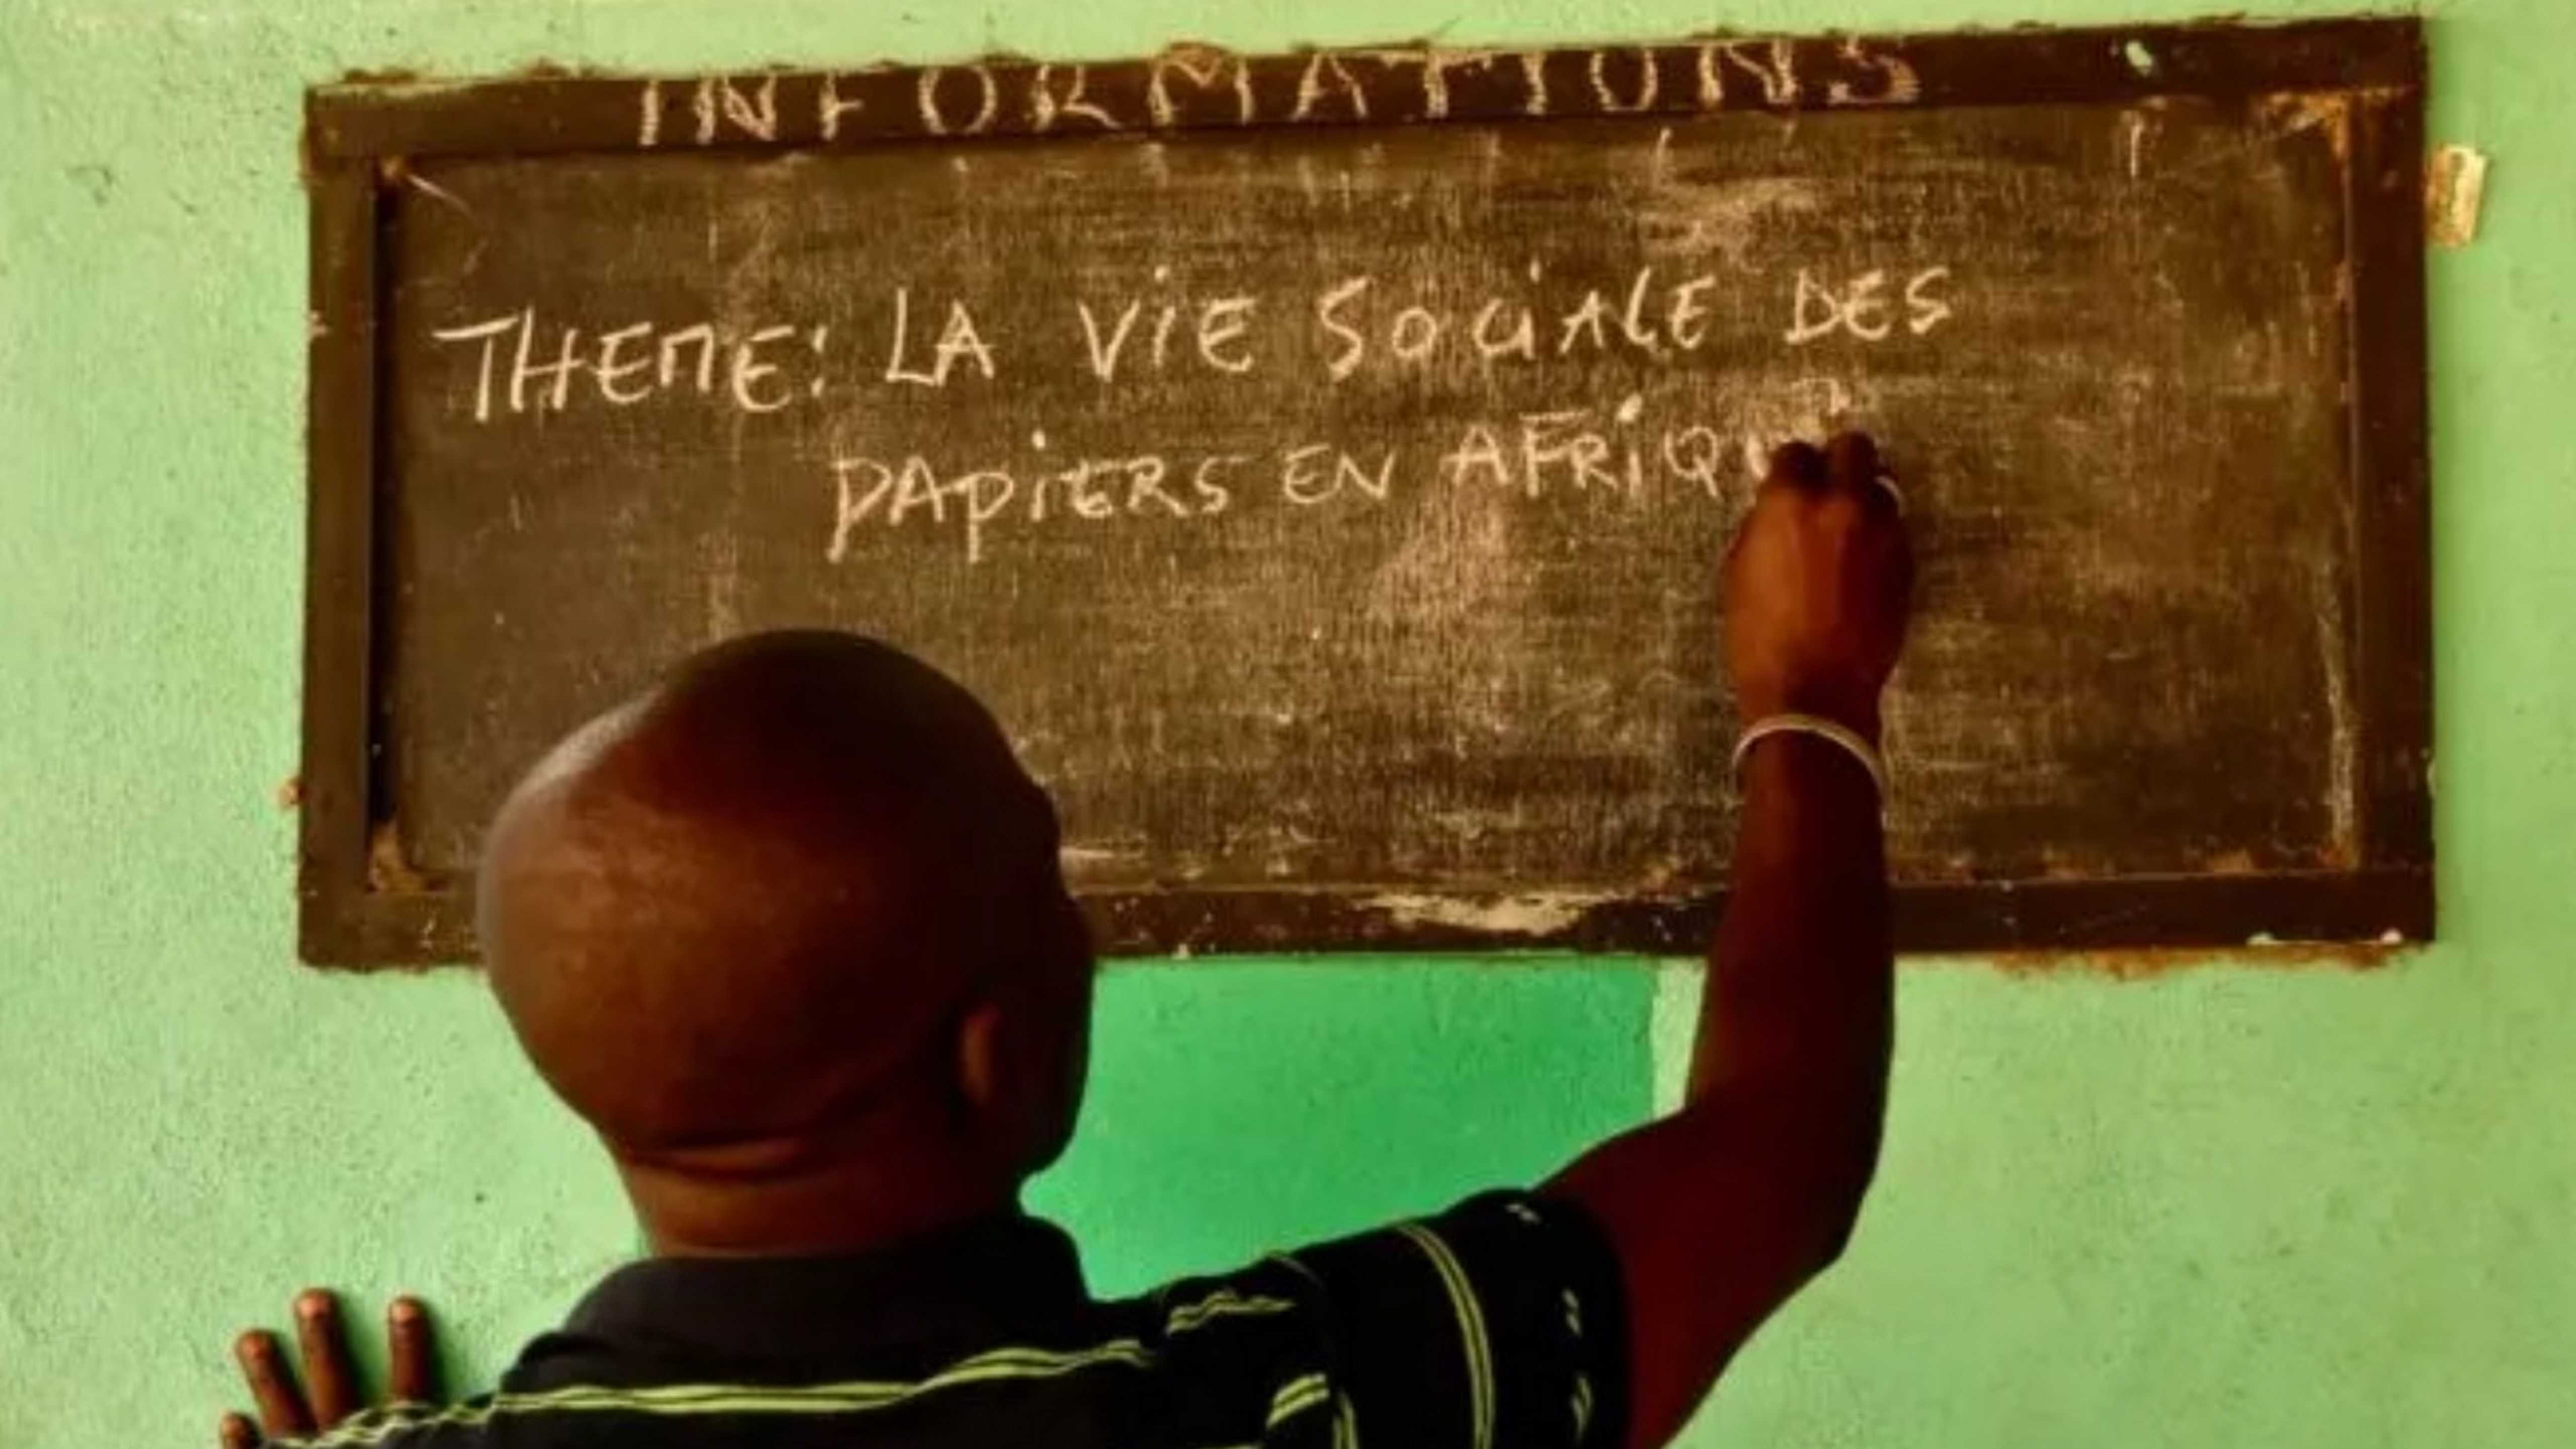 INFORMATIONS
THEME: LA ViE SOCiALE DES
PAPiERS EN AFRiQU